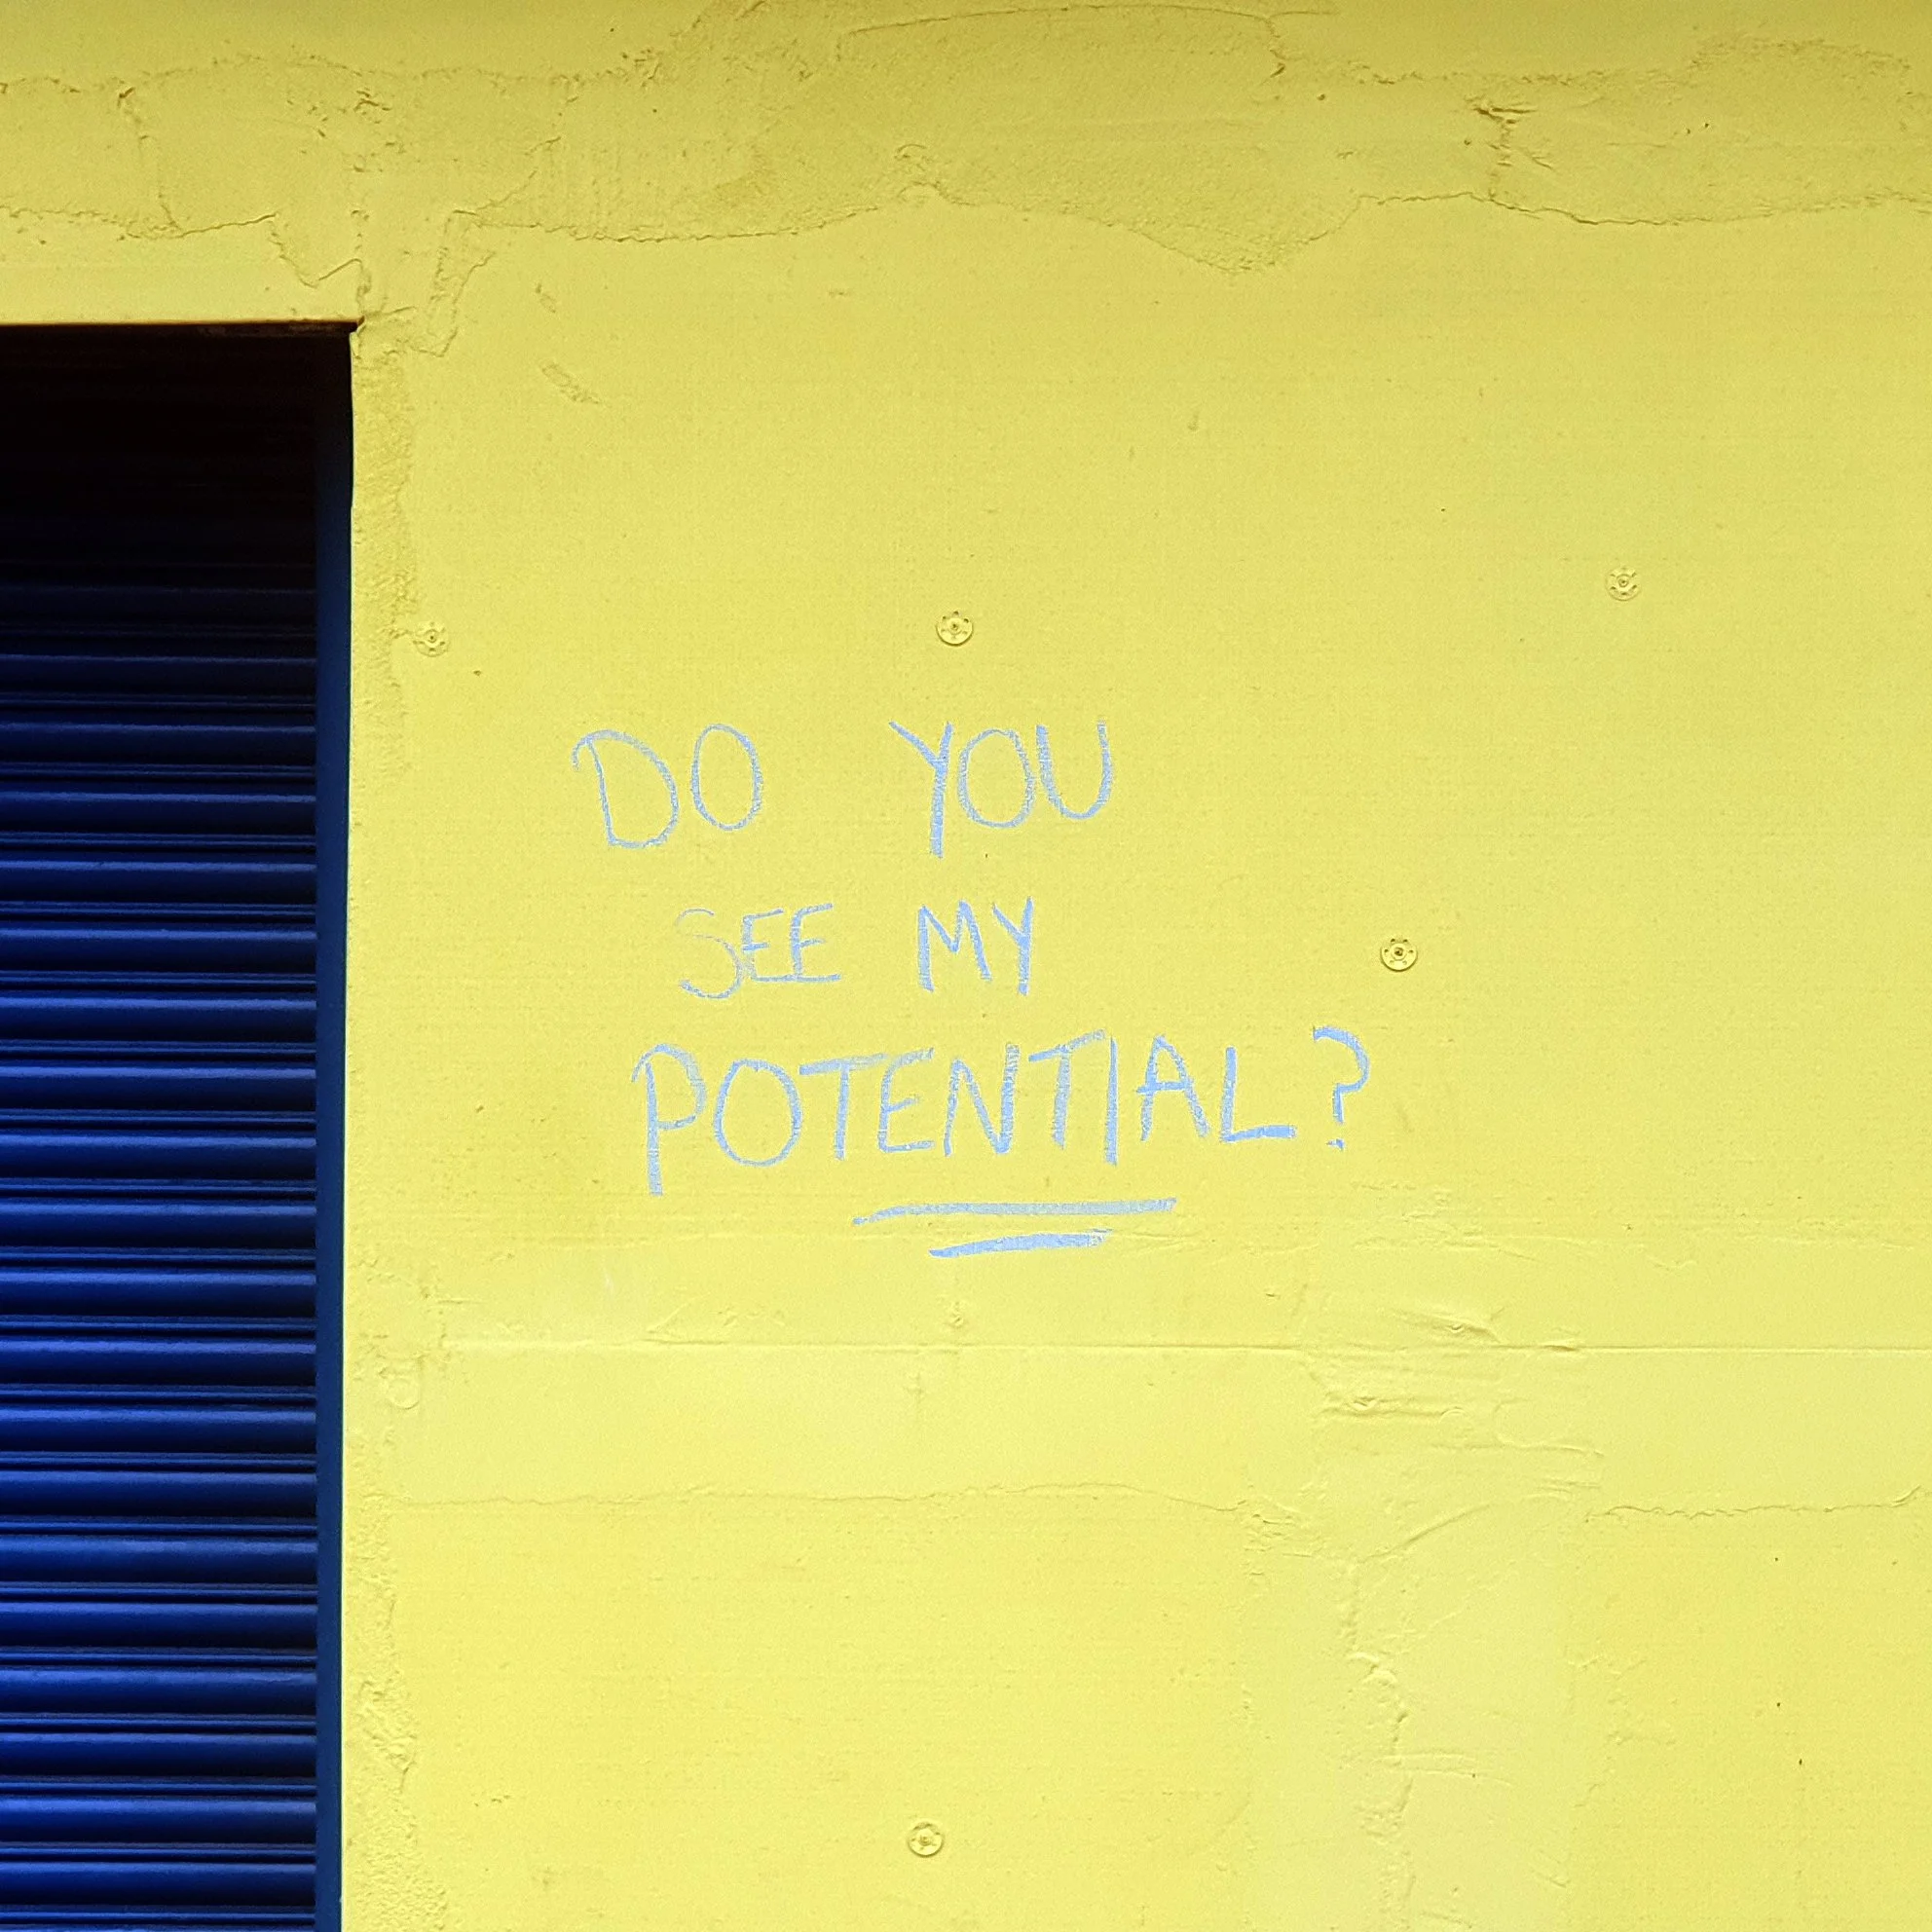 DO YOU
SEE MY
POTENTIAL?